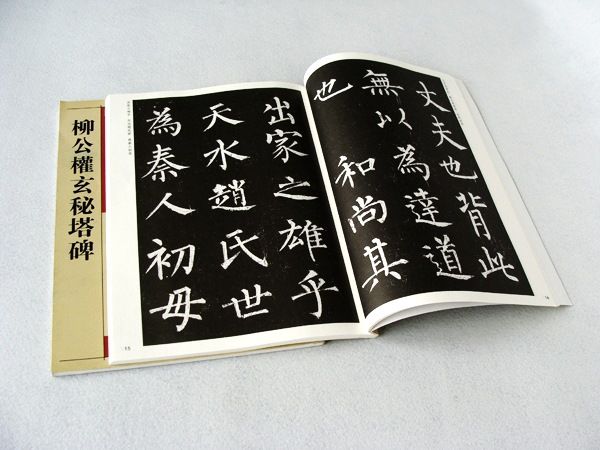 柳公權玄秘塔碑
丈夫也背此
無以為達道
也和尚其
出家之雄乎
天水趙氏世
為秦人初母
15